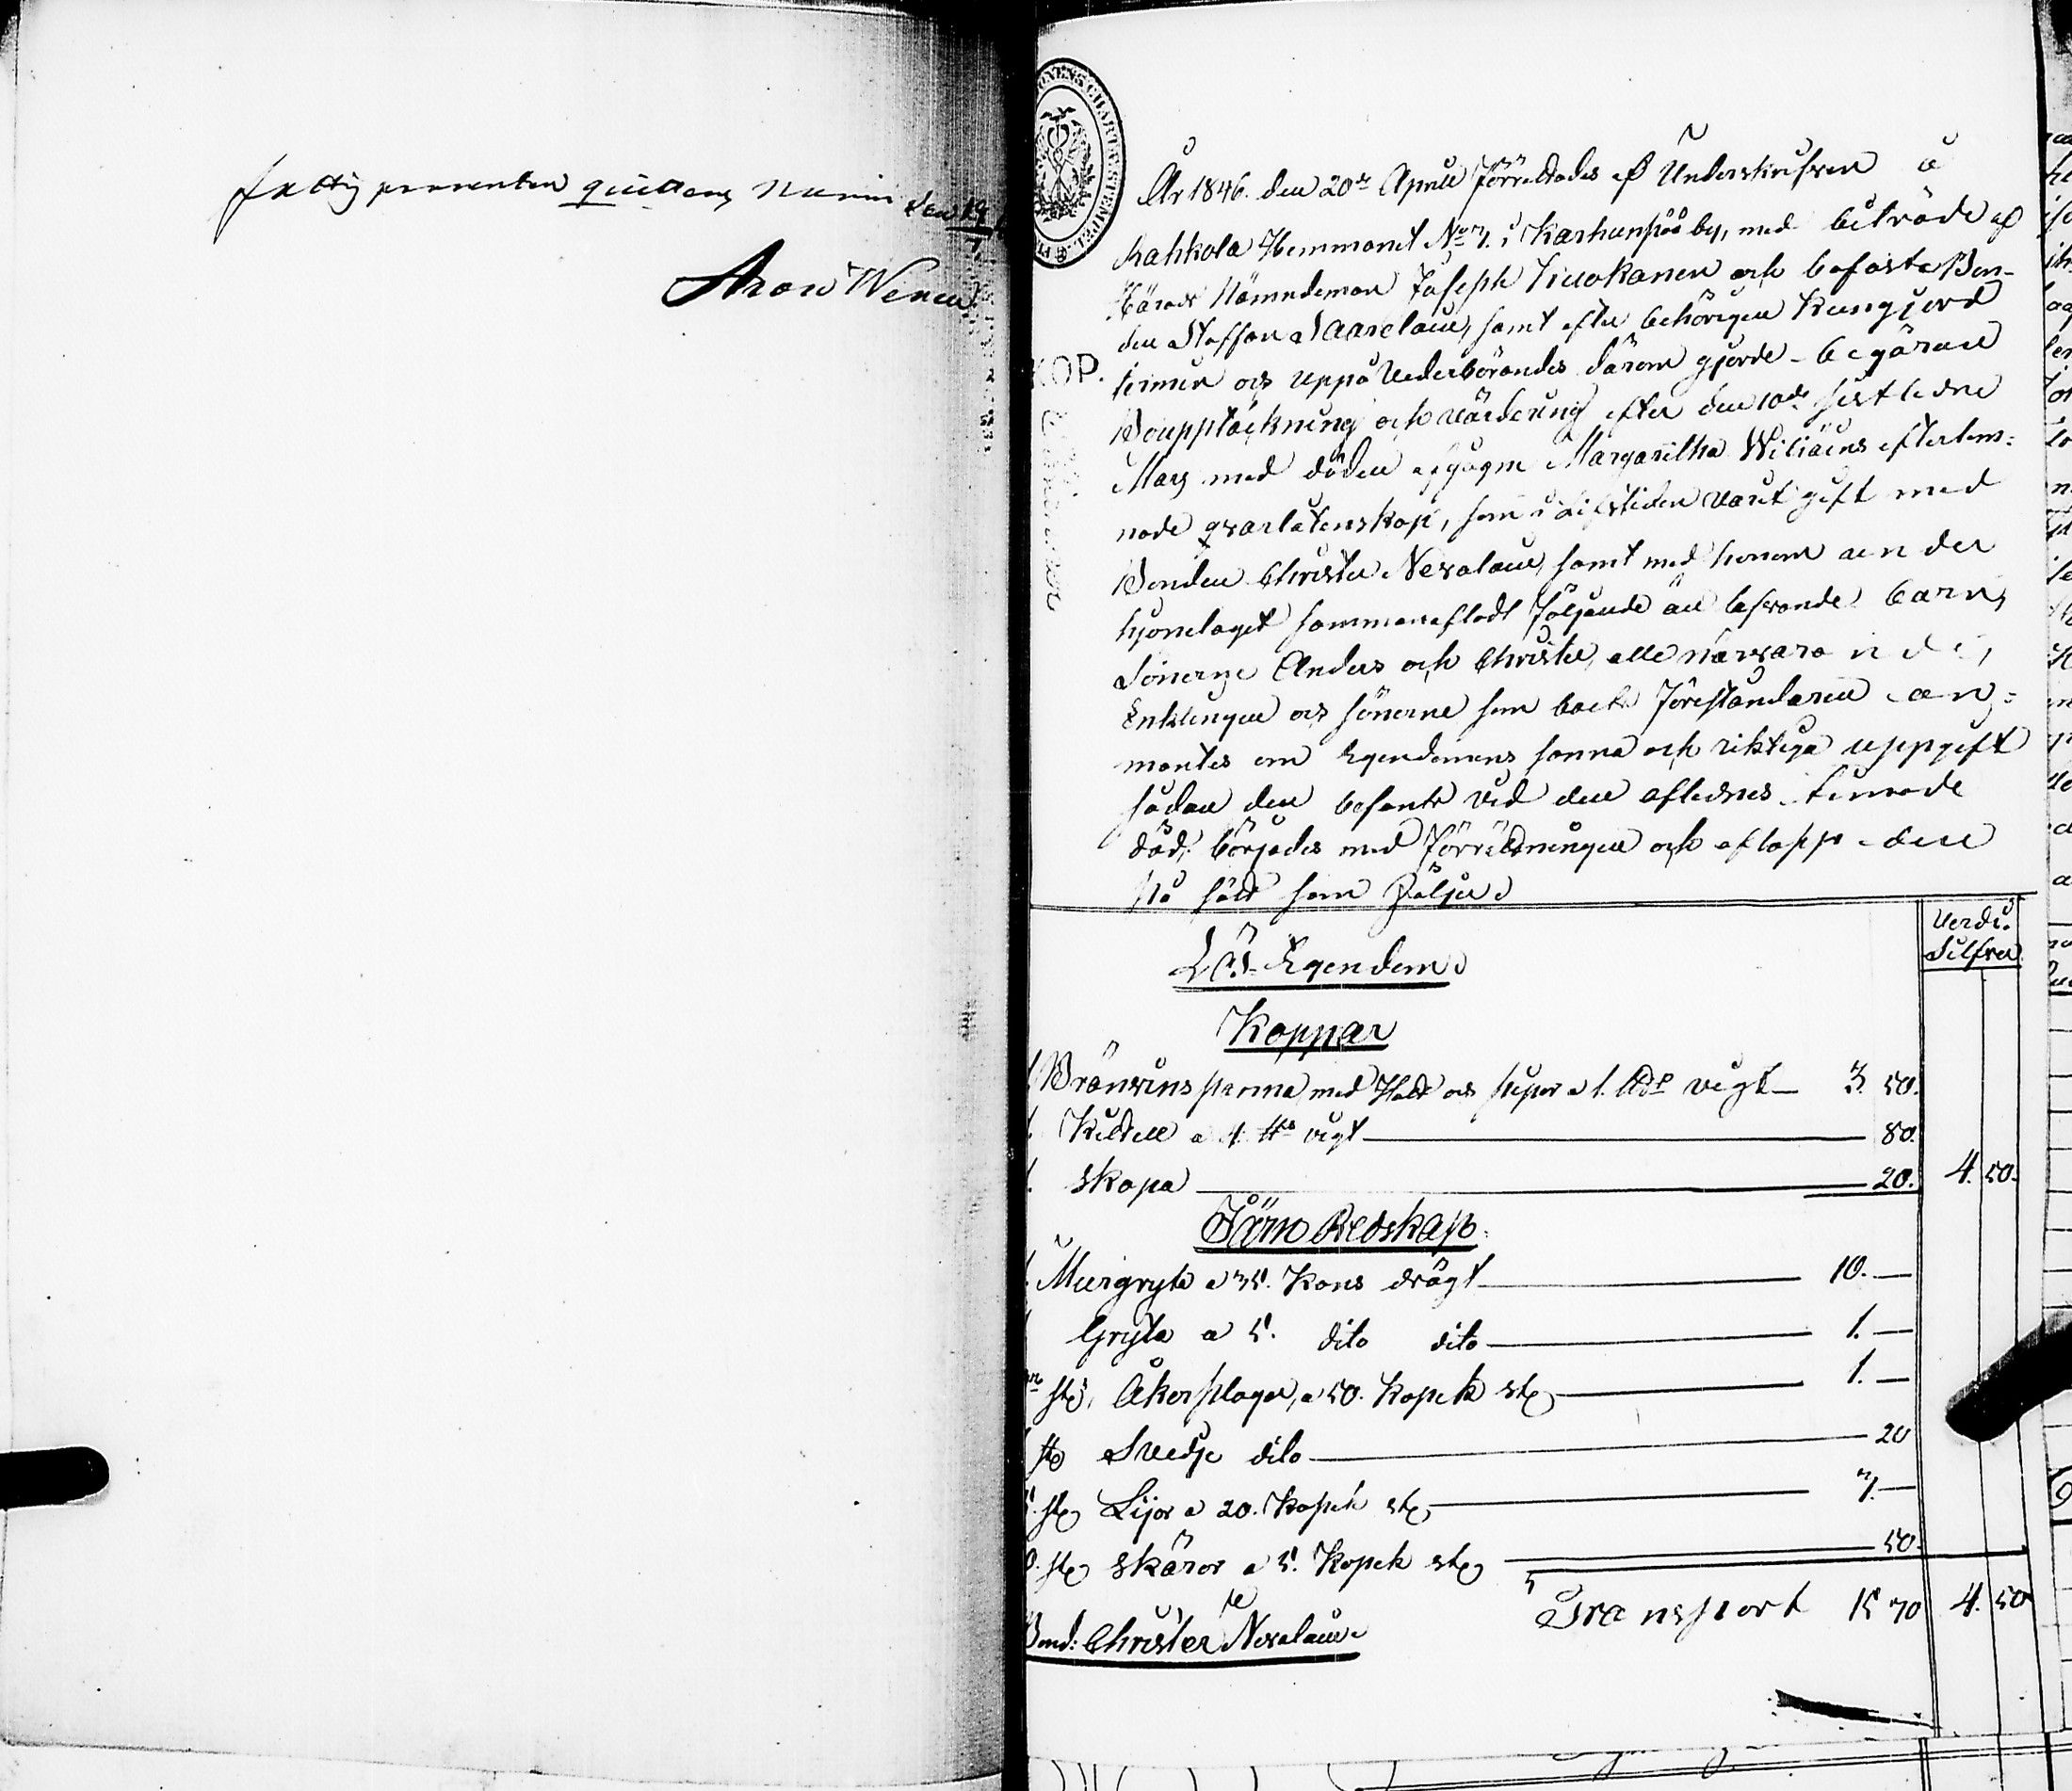 fattig procenten quitteras Nurmis den 19/7
Aron Wenen
KOP.
År 1846. den 20de April förrättades af Underskrifven å
Kahkola Hemmanet No 7. i Karhunpää by, med biträde af
Härads Nämndeman Joseph Kuokanen och befaste Bon-
den Staffan Saarelain, samt efter behörigen kungjord
timma och uppå Vederbörandes därom gjorde begäran
Bouppteckning och värdering efter den 10de sistledne
Mars med döden afgågne Margaretha Wiliäins efterlem-
nade qvarlåtenskap, som i Lifstiden varit gift med
Bonden Christer Nevalain, samt med honom under
hjonelaget sammanafladt följande än lefvande barn,
Sönerne Anders och Christer, alle närvarande,
Enklingen och sönerne som boets föreståndaren an-
mantes om Egendomens sanna och riktiga uppgift
sådan den befants vid den aflednes timade
död; börjades med förrättningen och aflopp den
på sätt som följer
Verde.
Silfver
Lös Egendom
Koppar
Bränvins panna med Hatt och pipor a 1. vigt 3. 50.
Kittell a 4. vigt 80.
skopa 20. 4. 50.
Järn Redskap.
Murgryta a 35. Kans drägt 10. —
Gryta a 5. dito dito 1. —
st. Åkerplogar, a 50. Kopek st. 1. —
st. Svedje dito 20
5. st. Lijor a 20. Kopek st. 7. —
0. st. skäror a 5. Kopek st. 50.
Transport 15 70 4. 50
Bond: Christer Nevalain